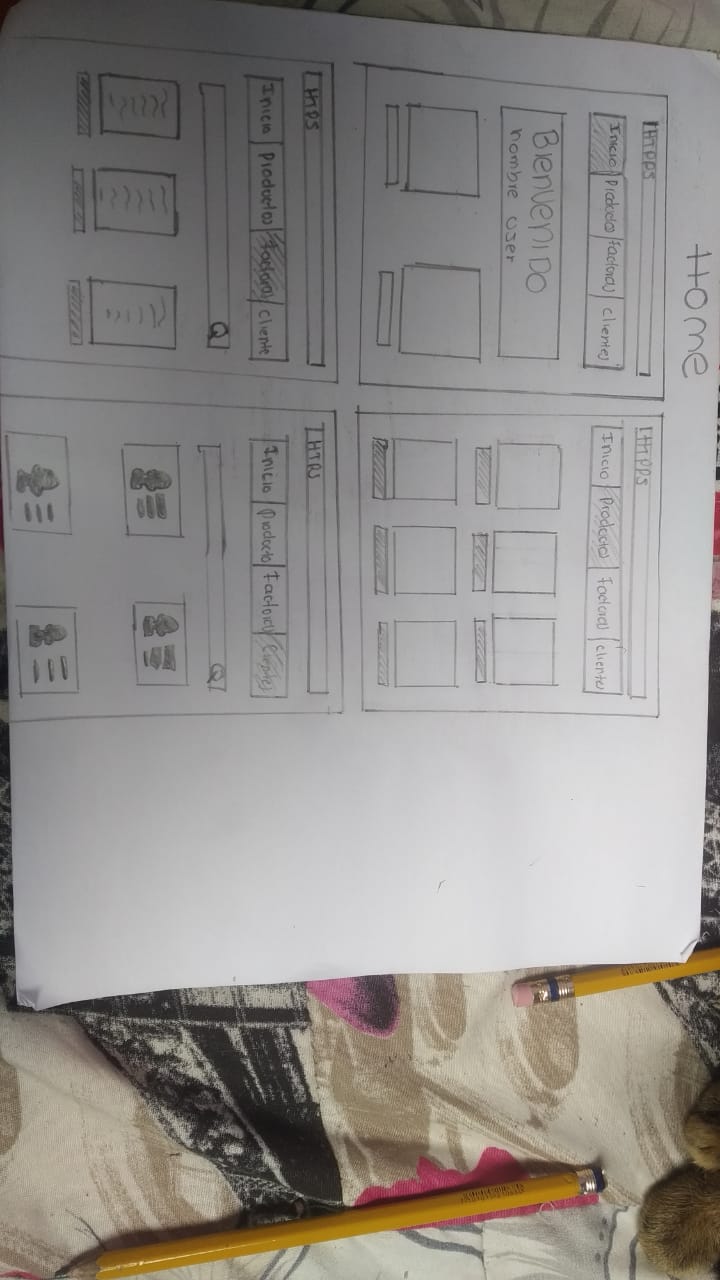 Home
HTPPS
Inicio Productos facturas Clientes
Bienvenido
nombre user
HTPPS
Inicio Productos facturas Cliente
HTPS
Inicio Productos facturas Cliente
HTPS
Inicio Producto facturas Clientes